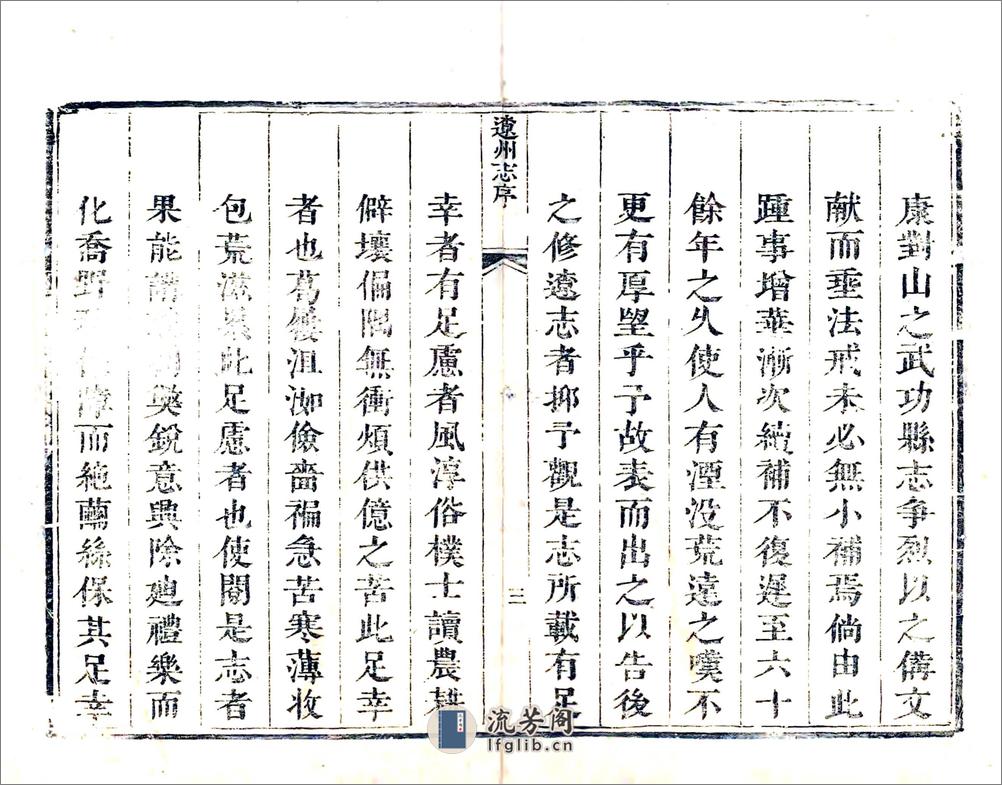 康對山之武功縣志争烈以之備文
献而垂法戒未必無小補焉倘由此
踵事增華漸次續補不復遲至六十
餘年之久使人有湮没荒遠之嘆不
更有厚望乎予故表而出之以告後
之修遼志者抑予觀是志所載有足
遼州志序
三
幸者有足慮者風淳俗樸士讀農耕
僻壤偏隅無衝煩供億之苦此足幸
者也葛屨沮洳儉嗇褊急苦寒薄收
包荒滋累此足慮者也使閱是志者
果能奬銳意興除廸禮樂而
化喬野而絶繭絲保其足幸
流芳阁
lfglib.cn